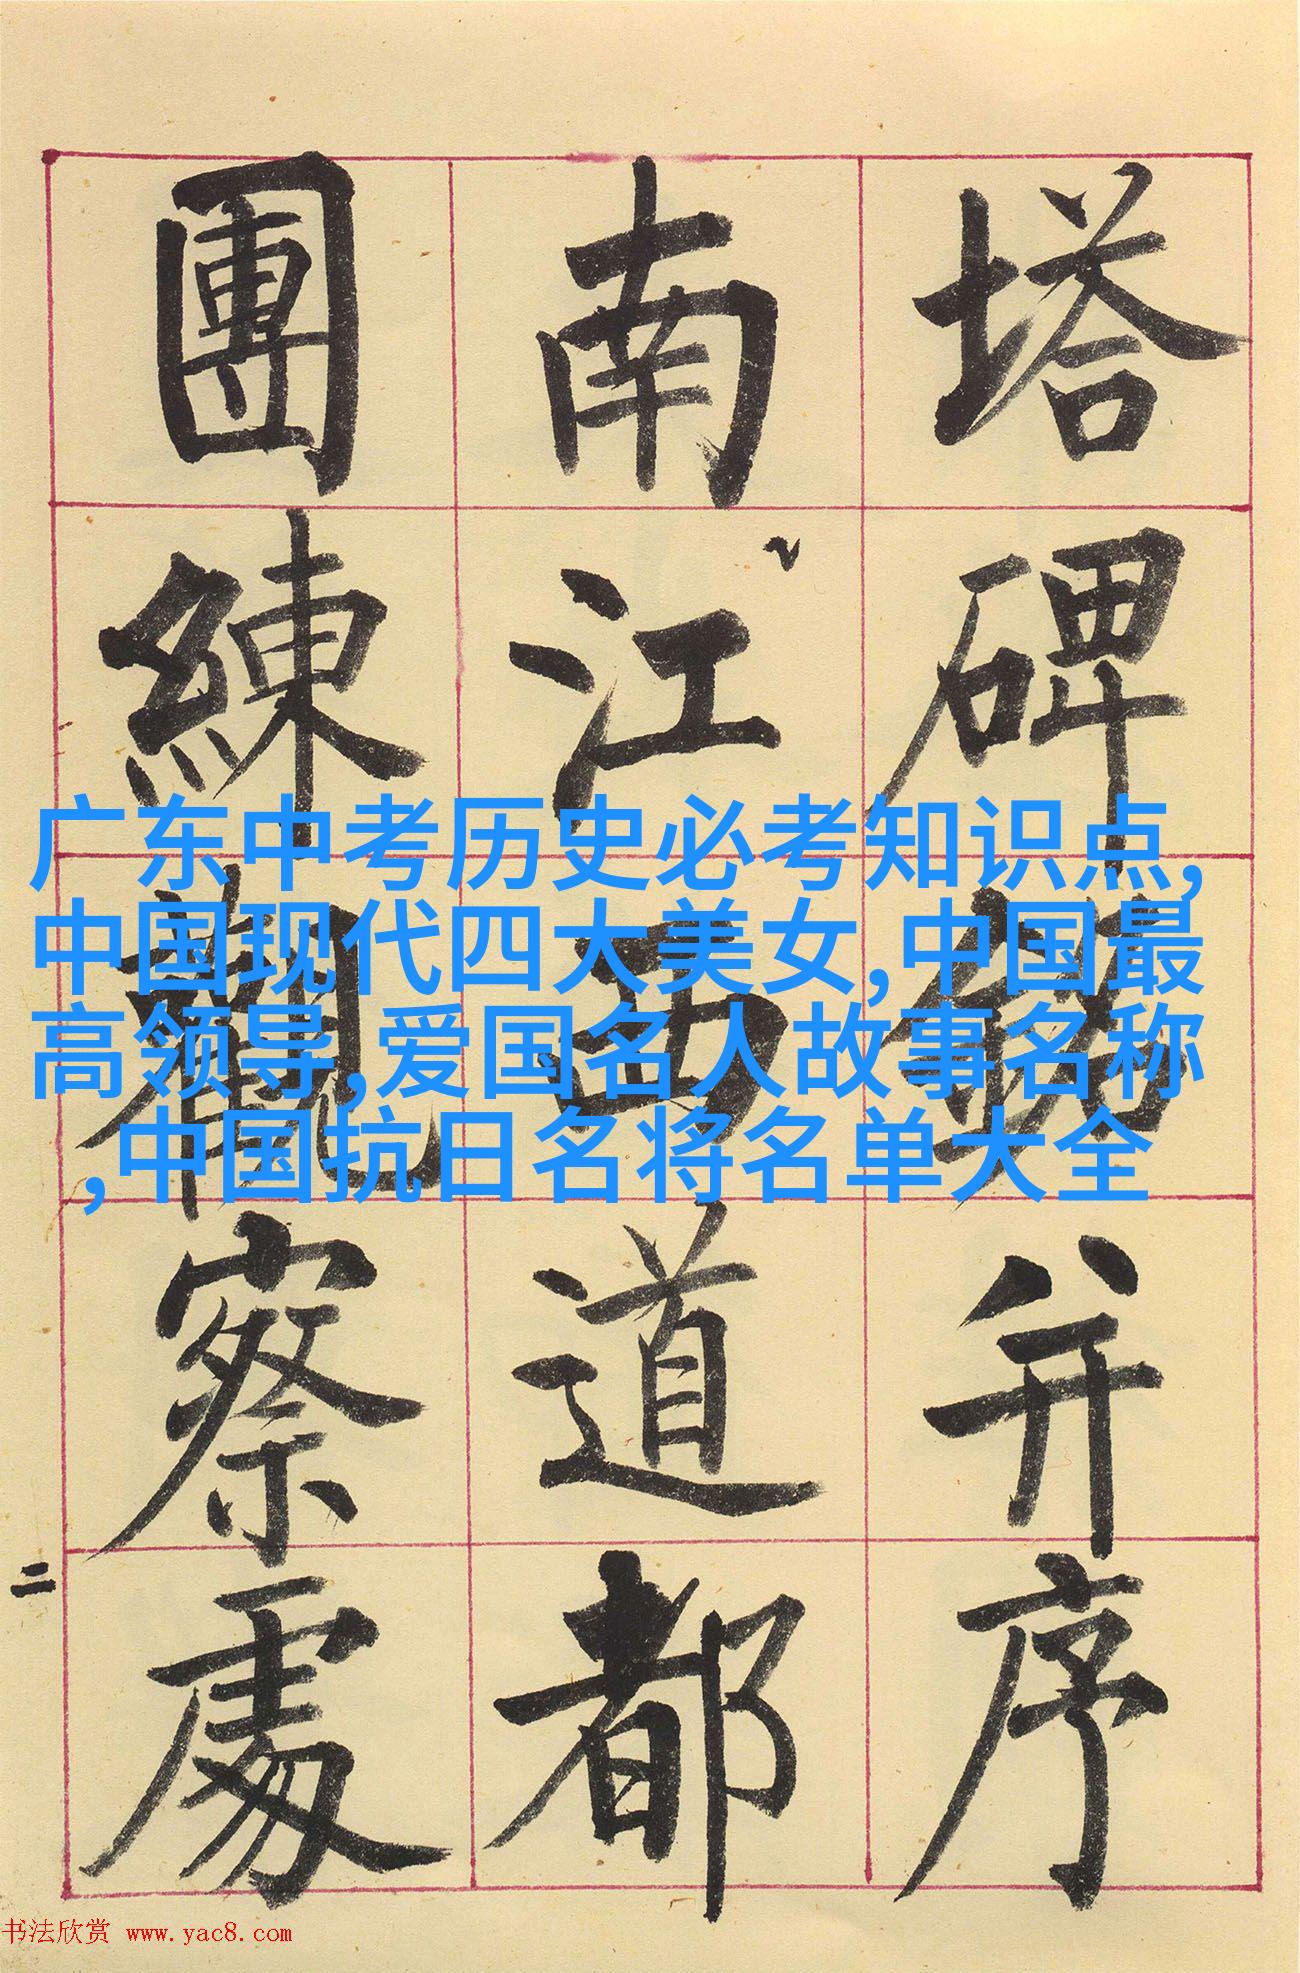 塔碑銘并序
南江西道都
團練觀察處
二
广东中考历史必考知识点,
中国现代四大美女,中国最
高领导,爱国名人故事名称
,中国抗日名将名单大全
书法欣赏 www.yac8.com